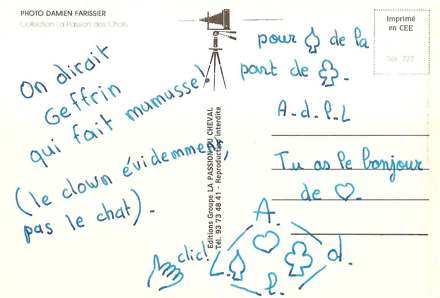 PHOTO DAMIEN FARISSIER
Collection La Passion des Chats
On dirait
Geffrin
qui fait mumusse!
(le clown évidemment,
pas le chat).
Editions Groupe LA PASSION DU CHEVAL
Tél. 93 73 48 41 - Reproduction Interdite
Imprimé
en CEE
pour ♤ de la
part de ♧.
A.d.l.L
Tu as le bonjour
de ♡.
A.
clic!
L. ♤ ♡ ♧ d.
l.